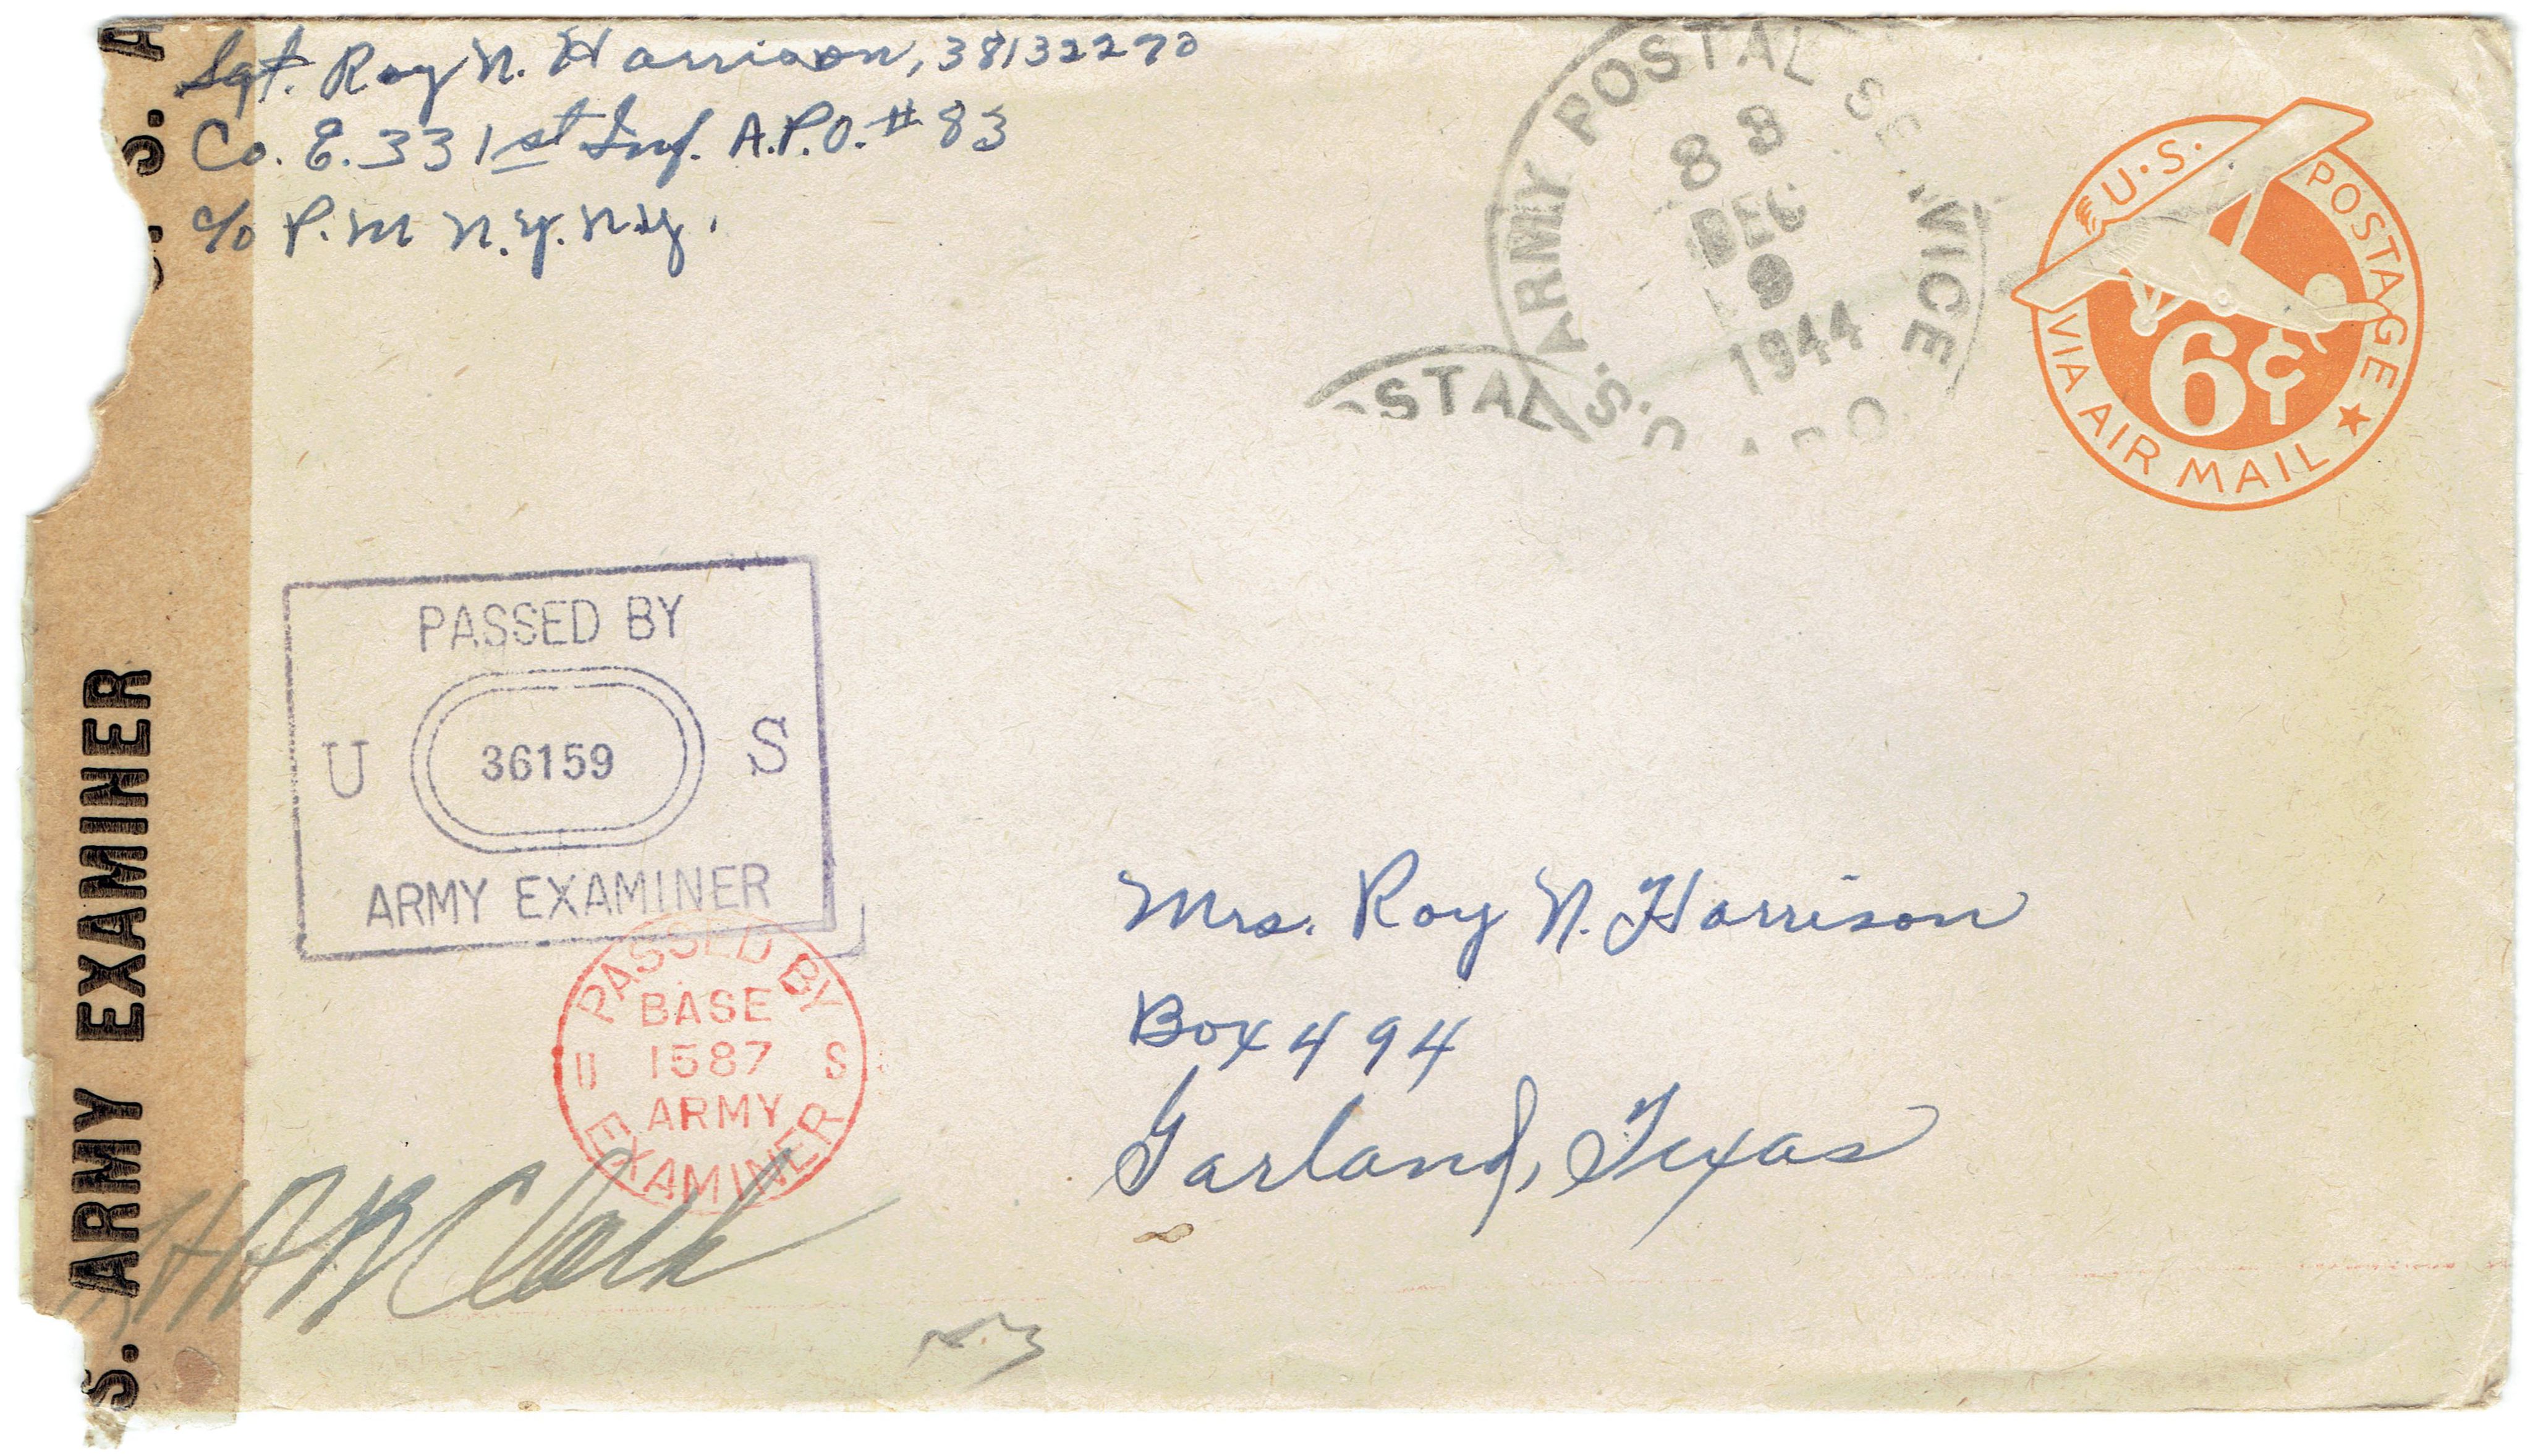 Sgt. Roy N. Harrison, 38132270
Co. E. 331st Inf. A.P.O. # 83
c/o P.M N.Y. N.Y.
ARMY POSTAL SERVICE
83
DEC
9
1944
APO
U.S.
OSTAL
U.S. POSTAGE
6¢
VIA AIR MAIL
S. ARMY EXAMINER
S. A
PASSED BY
U 36159 S
ARMY EXAMINER
PASSED BY
BASE
U 1587 S
ARMY
EXAMINER
Mrs. Roy N. Harrison
Box 494
Garland, Texas
Clark